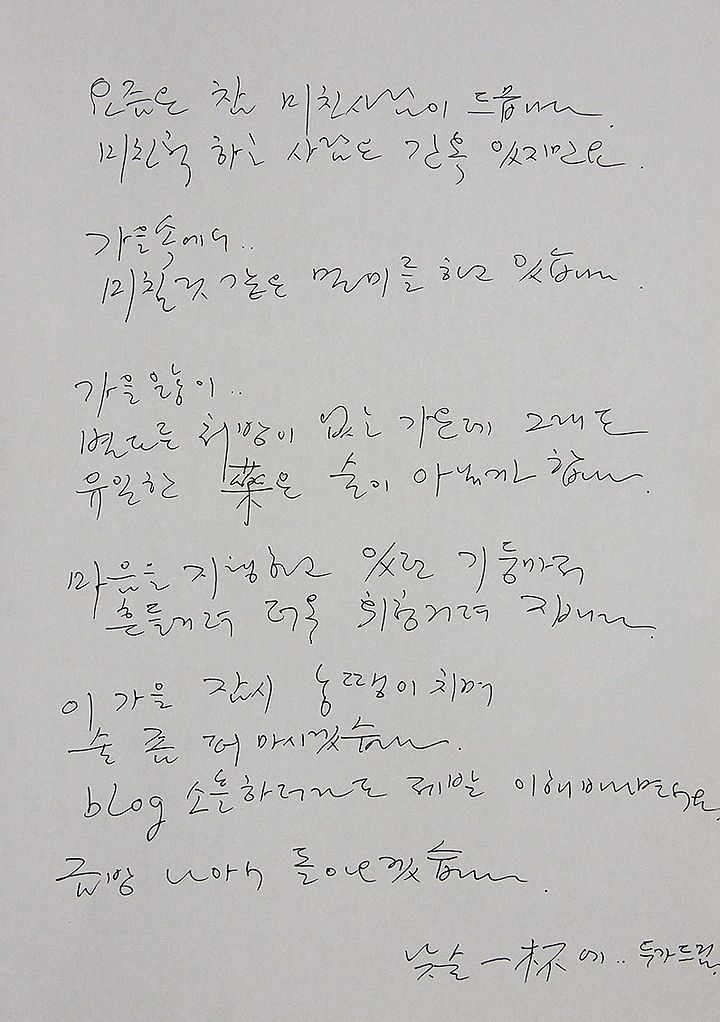 요즘은 참 미친사람이 드뭅니다.
미친척 하는 사람은 간혹 있지만요.
가을속에서..
미칠것 같은 멀미를 하고 있습니다.
가을 앓이..
별다른 처방이 없는 가운데 그래도
유일한 藥은 술이 아닐까 합니다.
마음을 지탱하고 있던 기둥마저
흔들거려 더욱 휘청거려 집니다.
이 가을 잠시 농땡이 치며
술 좀 퍼 마시겠습니다.
blog 소홀하더라도 제발 이해바래요
금방 나아서 돌아오겠습니다.
낮술 一杯 에.. 드림.